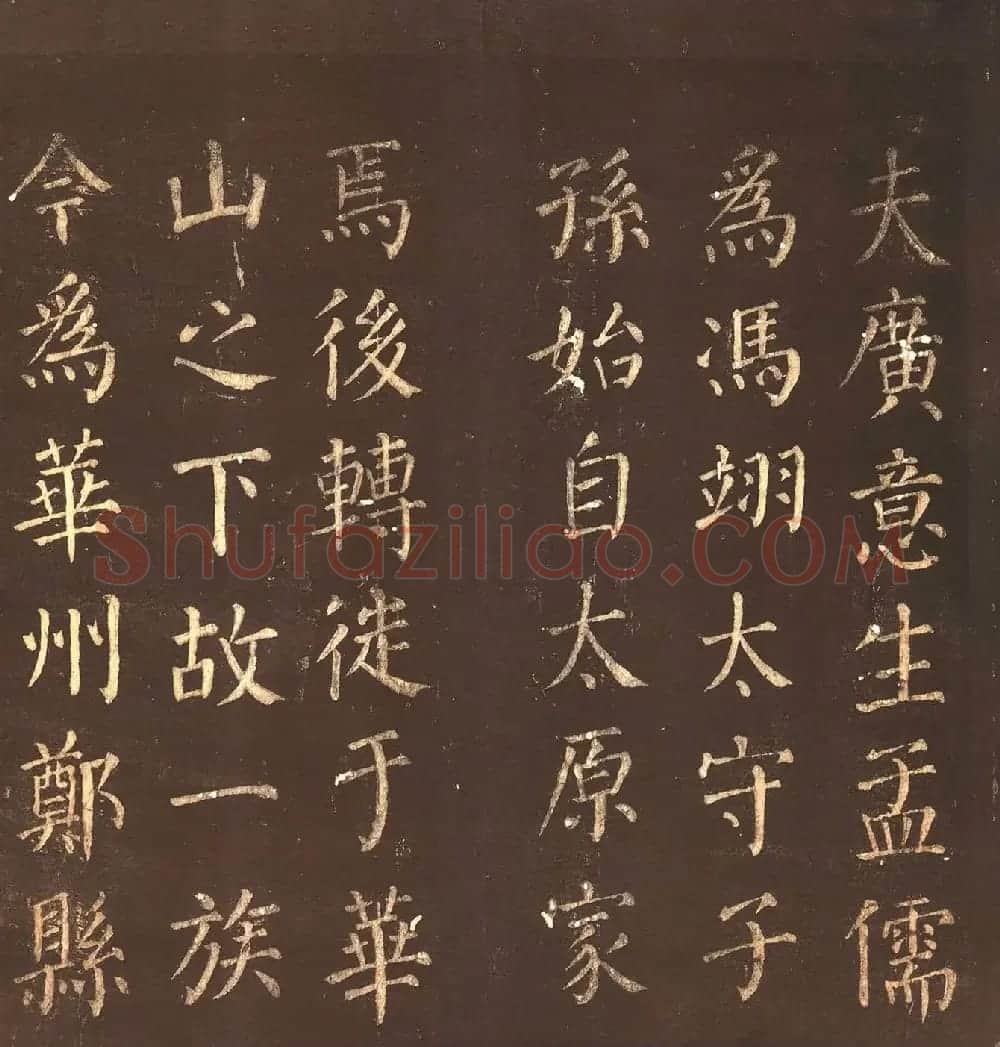 夫廣意生孟儒
為馮翊太守子
孫始自太原家
焉後轉徙于華
山之下故一族
今為華州鄭縣
Shufaziliao.COM